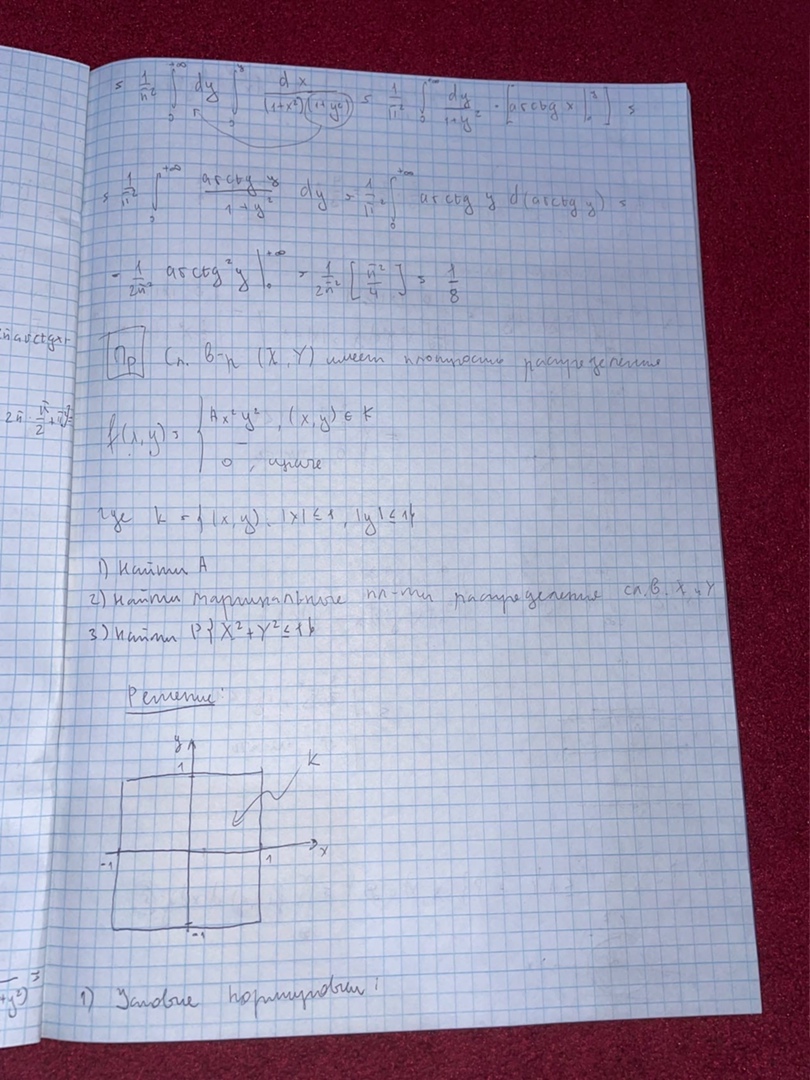 = 1/π² ∫₀^{+∞} dy ∫₀^y dx/((1+x²)(1+y²)) = 1/π² ∫₀^{+∞} dy/(1+y²) · [arctg x |₀^y] =
= 1/π² ∫₀^{+∞} arctg y/(1+y²) dy = 1/π² ∫₀^{+∞} arctg y d(arctg y) =
= 1/2π² arctg² y |₀^{+∞} = 1/2π² [π²/4] = 1/8
πarctgx+
Пр Сл. в-р (X, Y) имеет плотность распределения
2π · π/2 +
f(x,y) = { Ax²y², (x,y) ∈ K
0, иначе
где K = {(x,y): |x| ≤ 1, |y| ≤ 1}
1) Найти A
2) Найти маргинальные пл-ти распределения сл.в. X и Y
3) Найти P{X²+Y² ≤ 1}
Решение:
y
1
K
-1
1
x
-1
+y²) =
1) Условие нормировки: